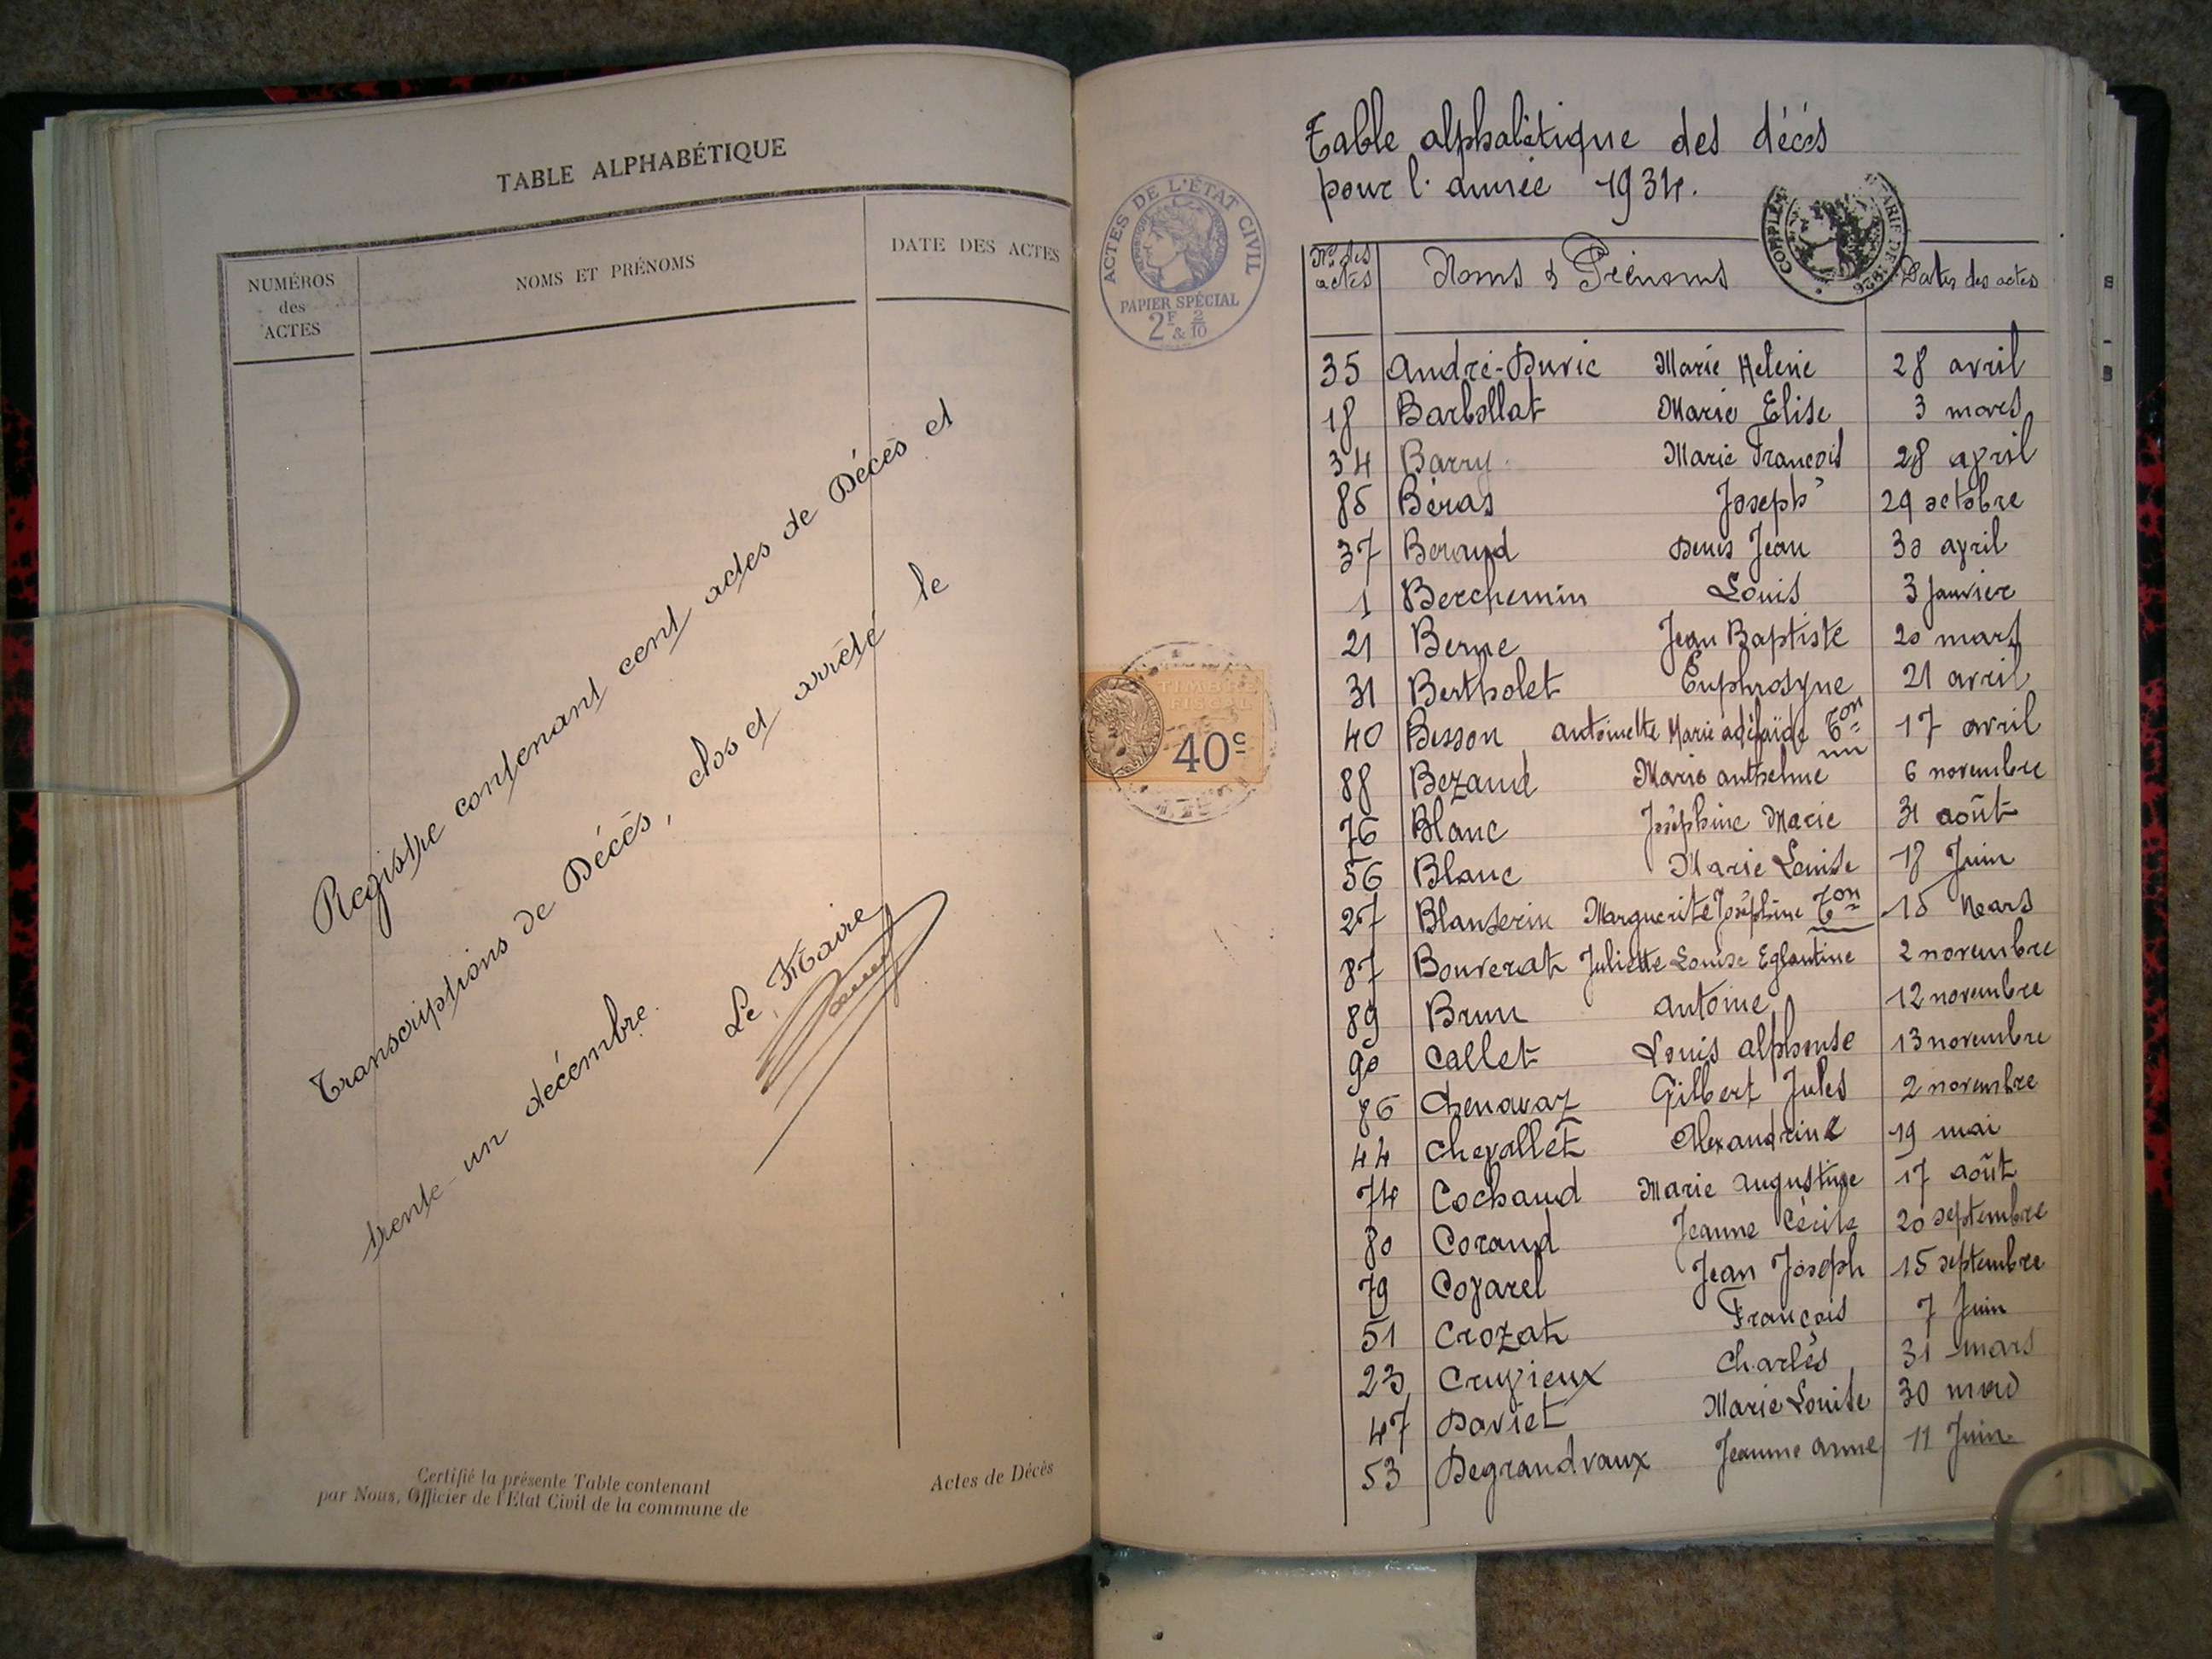 TABLE ALPHABÉTIQUE
NUMÉROS des ACTES
NOMS ET PRÉNOMS
DATE DES ACTES
Registre contenant cent actes de Décès et
Transcriptions de Décès, clos et arrêté le
trente-un décembre.
Le Maire
Certifié la présente Table contenant
Actes de Décès
par Nous, Officier de l'Etat Civil de la commune de
ACTES DE L'ÉTAT CIVIL
PAPIER SPÉCIAL
2F & 2/10
TIMBRE
FISCAL
40c
Table alphabétique des décès
pour l'année 1934.
Nos des actes
Noms & Prénoms
Dates des actes
35 André-Duvic Marie Helene 28 avril
18 Barbollat Marie Elise 3 mars
34 Barry Marie François 28 avril
85 Béras Joseph 29 octobre
37 Beraud Denis Jean 30 avril
1 Berchemin Louis 3 Janvier
21 Berne Jean Baptiste 20 mars
31 Bertholet Euphrosyne 21 avril
40 Besson Antoinette Marie adélaïde Ton 17 avril
88 Bezaud Marie anthelme 6 novembre
76 Blanc Joséphine Marie 31 août
56 Blanc Marie Louise 18 Juin
27 Blanserin Marguerite Joséphine Ton 15 Mars
87 Bouverat Juliette Louise Eglantine 2 novembre
89 Brun Antoine 12 novembre
90 Callet Louis alphonse 13 novembre
86 Chenavaz Gilbert Jules 2 novembre
44 Chevallet Alexandrine 19 mai
74 Cochaud Marie Augustine 17 août
80 Coraud Jeanne Cécile 20 septembre
79 Coyarel Jean Joseph 15 septembre
51 Crozat François 7 Juin
23 Cruzieux Charles 31 mars
47 Daviet Marie Louise 30 mars
53 Degrandvaux Jeanne Anne 11 Juin